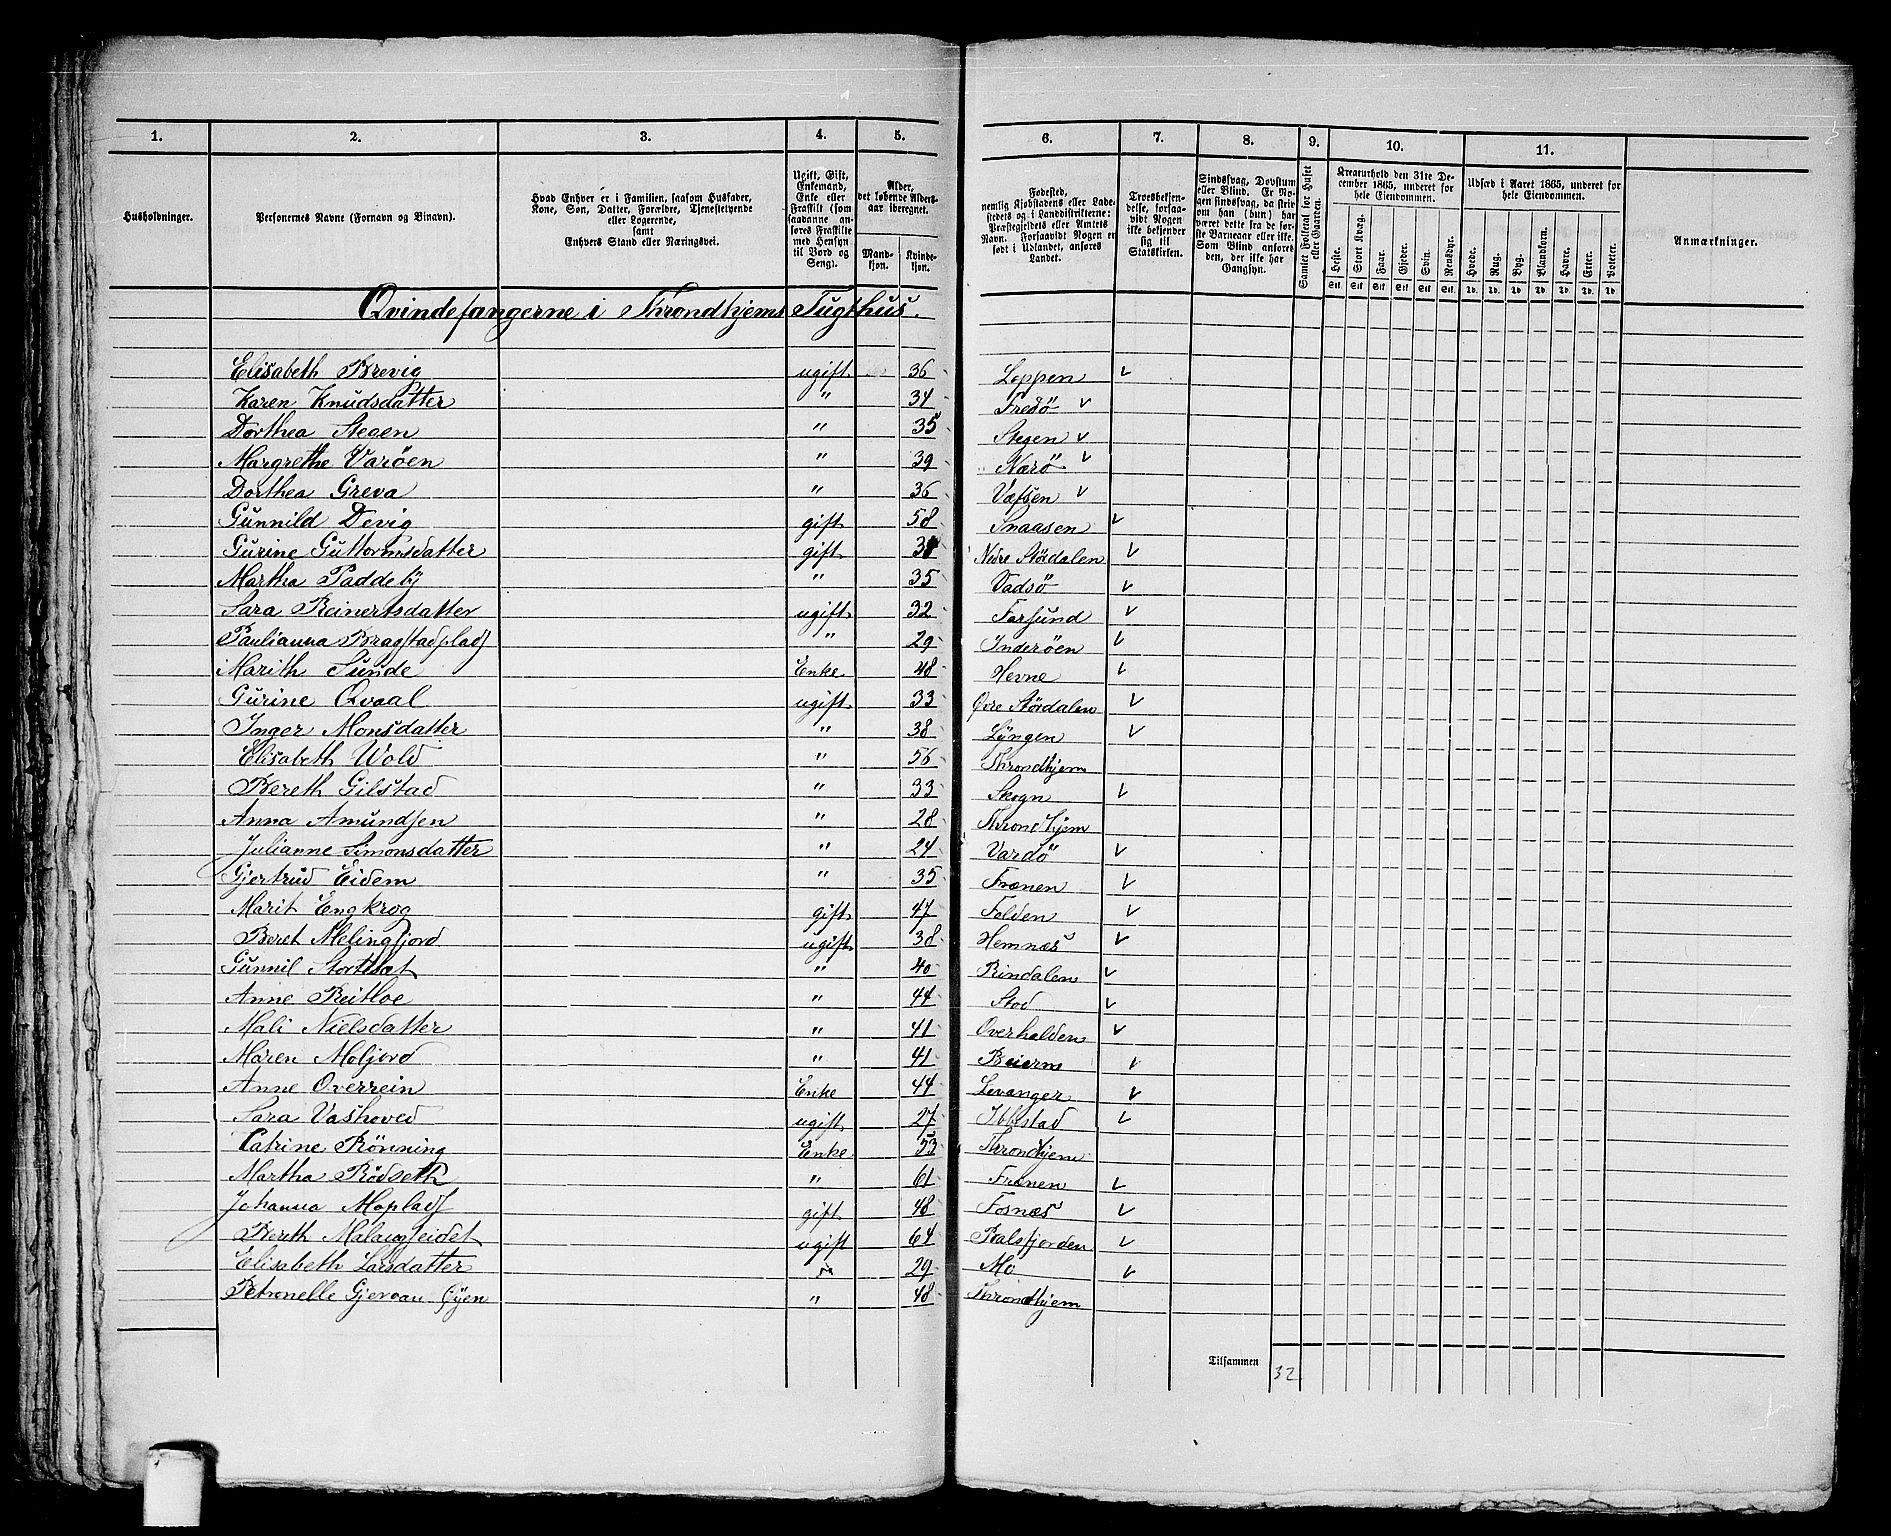 1. 2. 3. 4. 5. 6. 7. 8. 9. 10. 11.
Husholdninger.
Personernes Navne (Fornavn og Binavn).
Hvad Enhver er i Familien, saasom Husfader,
Kone, Søn, Datter, Forældre, Tjenestetyende
eller Logerende,
samt
Enhvers Stand eller Næringsvei.
Ugift, Gift,
Enkemand,
Enke eller
Fraskilt (som
saadanne an-
føres Fraskilte
med Hensyn
til Bord og
Seng).
Alder,
det løbende Alders-
aar iberegnet.
Mand-
kjøn.
Kvinde-
kjøn.
Fødested,
nemlig Kjøbstadens eller Lade-
stedets og i Landdistrikterne:
Præstegjeldets eller Annexets
Navn. Forsaavidt Nogen er
født i Udlandet, anføres
Landet.
Troesbekjen-
delse, forsaa-
vidt Nogen
ikke bekjender
sig til
Statskirken.
Sindssvag, Døvstum
eller Blind. Er No-
gen sindssvag, da striv
om han (hun) har
været dette fra de før-
ste Barneaar eller ikke.
Som Blind anføres
den, der ikke har
Gangsyn.
Samlet Folketal for Huset
eller Gaarden.
Kreaturhold den 31te De-
cember 1865, underet for
hele Eiendommen.
Heste. Stort Kvæg. Faar. Gjeder. Svin. Rensdyr.
St. St. St. St. St. St.
Udsæd i Aaret 1865, underet for
hele Eiendommen.
Hvede. Rug. Byg. Blandkorn. Havre. Erter. Poteter.
Td. Td. Td. Td. Td. Td. Td.
Anmærkninger.
Qvindefangerne i Throndhjems Tugthus.
Elisabeth Brevig ugift 36 Loppen
Karen Knudsdatter " 34 Fredö
Dorthea Stegen " 35 Stegen
Margrethe Varöen " 39 Nærö
Dorthea Greva " 36 Væfsen
Gunnild Devig gift 58 Snaasen
Gurine Guttormsdatter gift Nedre Stördalen
Martha Paddeby " 35 Vadsö
Sara Reinertsdatter ugift 32 Farsund
Paulianna Bragstadplads " 29 Inderöen
Marith Sunde Enke 48 Hevne
Gurine Qvaal ugift 33 Øvre Stördalen
Inger Monsdatter " 38 Lyngen
Elisabeth Wold " 56 Throndhjem
Bereth Gilstad " 33 Skogn
Anna Amundsen " 28 Throndhjem
Julianne Simonsdatter " 24 Vardö
Gjertrud Eidem " 35 Frænen
Marit Engkrog gift 47 Folden
Beret Melingfjord ugift 38 Hemnæs
Gunnil Stortlsæt " 40 Rindalen
Anne Reitloe " 44 Stod
Mali Nielsdatter " 41 Overhalden
Maren Moljord " 41 Beiern
Anne Overrein Enke 44 Levanger
Sara Vashoved ugift 27 Ibbestad
Catrine Rönning Enke 53 Throndhjem
Martha Rödseth " 61 Frænen
Johanna Moplads gift 48 Fosnæs
Bereth Malangseidet ugift 64 Balsfjorden
Elisabeth Larsdatter " 29 Mo
Petronelle Gjervan Öyen " 48 Throndhjem
Tilsammen 32